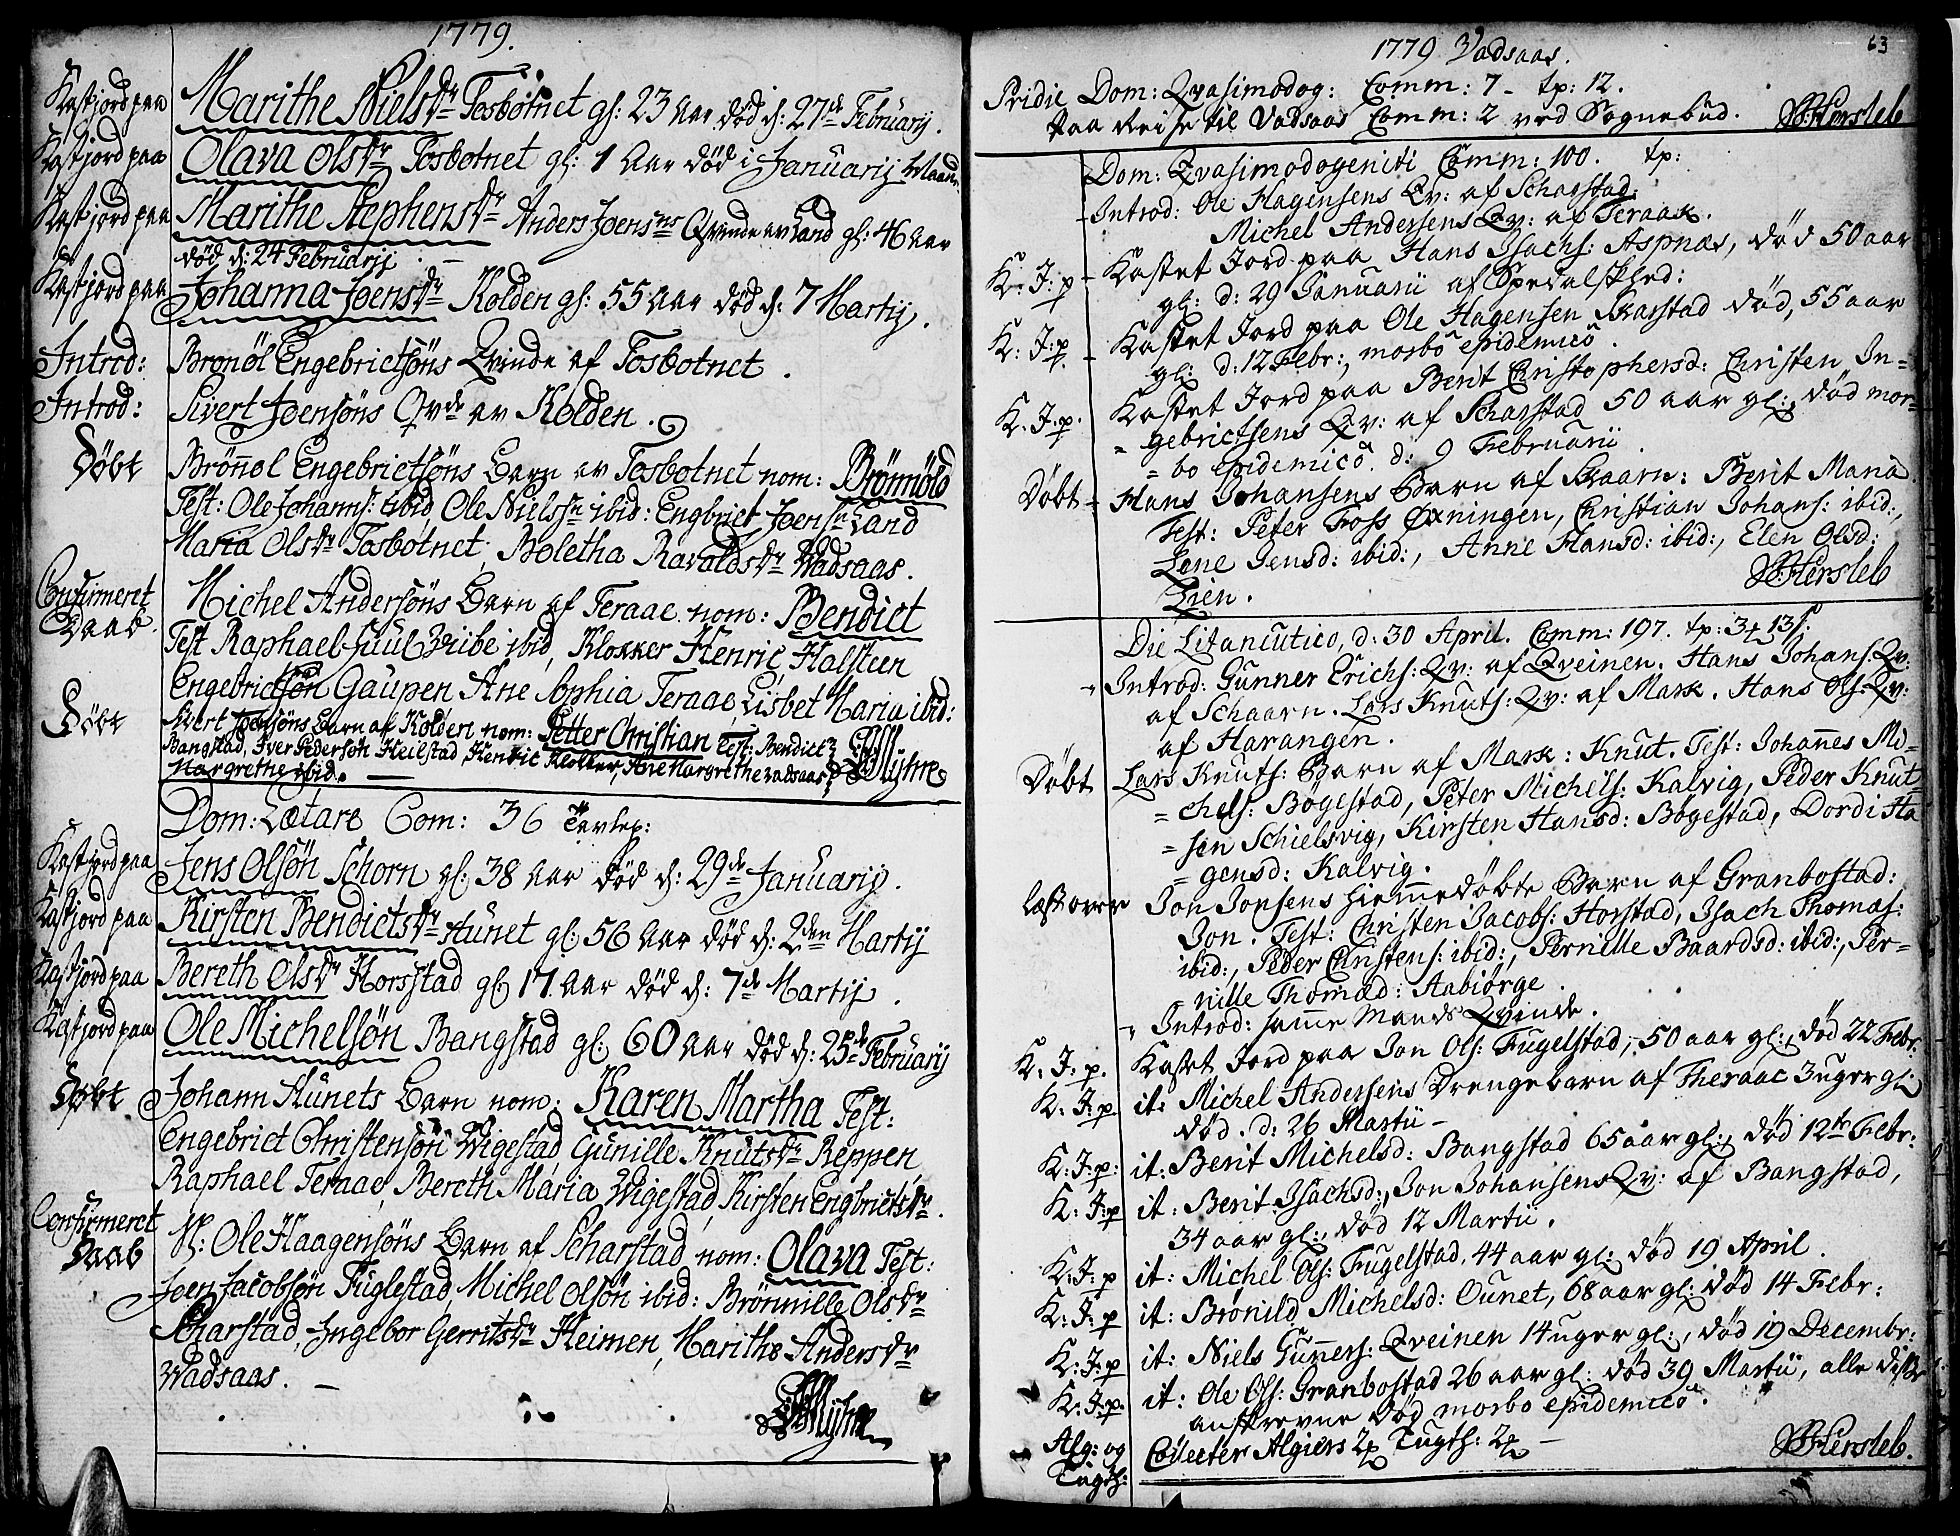 1779.
Kastjord paa Marithe Nielsdr Tosbotnet gl: 23 Aar død d: 27de Februarij.
Kastjord paa Olava Olsdr Tosbotnet gl: 1 Aar død i Januarij Maan.
Kastjord paa Marithe Stephensdr Anders Joensns Qvinde av Land gl: 46 Aar
død d: 24 Februarij
Kastjord paa Johanna Joensdr Kolden gl: 55 Aar død d: 7 Martij.
Introd: Bronøl Engebrictsøns Qvinde af Tosbotnet.
Introd: Sivert Joensøns Qvde av Kolden.
Døbt Brønnøl Engebrictsøns Barn av Tosbotnet nom: Brønnild
Test: Ole Johans: ibid, Ole Nielssn ibid: Engbrict Joensn Land
Maria Olsdr Tosbotnet, Boletha Ravaldsdr Wadsaas.
Confirmeret Daab Michel Andersøns Barn af Teraae nom: Bendict
Test Raphael Juul Wiibe ibid, Klokker Henric, Halsteen
Engebrictsøn Gaupen Ane Sophia Teraae, Lisbet Maria ibid:
Døbt Sivert Joensøns Barn af Kolden nom: Petter Christian Test: Bendict
Bangstad, Iver Pedersøn Heilstad, Henric Klokker, Ane Margrethe Vadsaas
Margrethe ibid. Myhre
Dom: Lætare Com: 36 Tavlep:
Kastjord paa Jens Olsøn Schorn gl: 38 Aar død d: 29de Januarij.
Kastjord paa Kirsten Bendictsdr Aunet gl: 56 Aar død d: 2den Martij
Kastjord paa Bereth Olsdr Horsstad gl: 17 Aar død d: 7de Martij.
Kastjord paa Ole Michelsøn Bangstad gl: 60 Aar død d: 25de Februarij
Døbt Johann Aunets Barn nom: Karen Martha Test:
Engebrict Christensøn Wigestad Gunille Knutsdr Reppen,
Raphael Teraae, Bereth Maria Wigestad, Kirsten Engbrictsdr.
Confirmeret Daab N: Ole Haagensøns Barn af Scharstad nom: Olava Test:
Joen Jacobsøn Fuglestad, Michel Olsøn ibid: Brønnille Olsdr
Scharstad, Ingebor Gerritsdr Heimen, Marithe Andersdr
Wadsaas.
Myhre
1779 Vadsaas. 63
Pridie Dom: Qvasimodog: Comm: 7 - tp: 12.
Paa Reise til Vadsaas Comm: 2 ved Sognebud. Hersleb
Dom: Qvasimodogeniti Comm: 100. tp:
Introd: Ole Hagensens Qv: af Scharstad.
Michel Andersens Qv: af Teraak.
K: J: p - Kastet Jord paa Hans Isachs: Aspnæs, død 50 aar
gl: d: 29 Januarii af Spedalskhed:
K: J: p - Kastet Jord paa Ole Hagensen Skarstad død, 55 aar
gl: d: 12 Febr:, morbo epidemico.
K: J: p. Kastet Jord paa Berit Christophersd: Christen In=
=gebrictsens Qv: af Scharstad 50 aar gl:, død mor=
=bo epidemico. d: 9 Februarii.
Døbt - Hans Johansens Barn af Skaarn: Berit Maria.
Test: Peter Foss Øxningen, Christian Johans: ibid:,
Lene Jensd: ibid:, Anne Hansd: ibid:, Elen Olsd:
Lien. Hersleb
Die Litaneutico, d: 30 April. Comm: 197. tp: 34 13/.
Introd: Gunner Erichs: Qv: af Qveinen. Hans Johans: Qv:
af Schaarn. Lars Knuts: Qv: af Mark. Hans Ols: Qv:
af Harangen.
Døbt Lars Knuts: Barn af Mark: Knut. Test: Johannes Mi=
=chels: Bøgestad, Peter Michels: Kalvig, Peder Knut=
=sen Schielsvig, Kirsten Hansd: Bøgestad, Dordi Ha
=gensd: Kalvig.
Læst over Jon Jonsens hiemmedøbte Barn af Granbostad:
Jon. Test: Christen Jacobs: Horstad, Isach Thomas:
ibid:, Peder Christens: ibid:, Pernille Baardsd: ibid:, Per=
=nille Thomæd: Aabiørge.
Introd: samme Mands Qvinde.
K: J: p. Kastet Jord paa Jon Ols: Fugelstad, 50 aar gl:, død 22 Febr:
K: J: p it: Michel Andersens Drengebarn af Theraae 3 uger gl:
død. d: 26 Martii -
K: J: p: it: Berit Michelsd: Bangstad 65 aar gl:, død 12te Febr:
K: J: p it: Berit Isachsd:, Jon Johansens Qv: af Bangstad,
34 aar gl:, død 12 Martii.
K: J: p it: Michel Ols: Fugelstad, 44 aar gl: død 19 April.
K: J: p it: Brønild Michelsd: Ounet, 68 aar gl: død 14 Febr:
K: J: p it: Niels Gunners: Qveinen 14 uger gl:, død 19 Decembr:
K: J: p. it: Ole Ols: Granbostad 26 aar gl: død 39 Martii, alle disse
anskrevne død morbo epidemico.
Alg: og Tugth: Collecter Algiers 2 Tugth: 2 - Hersleb.